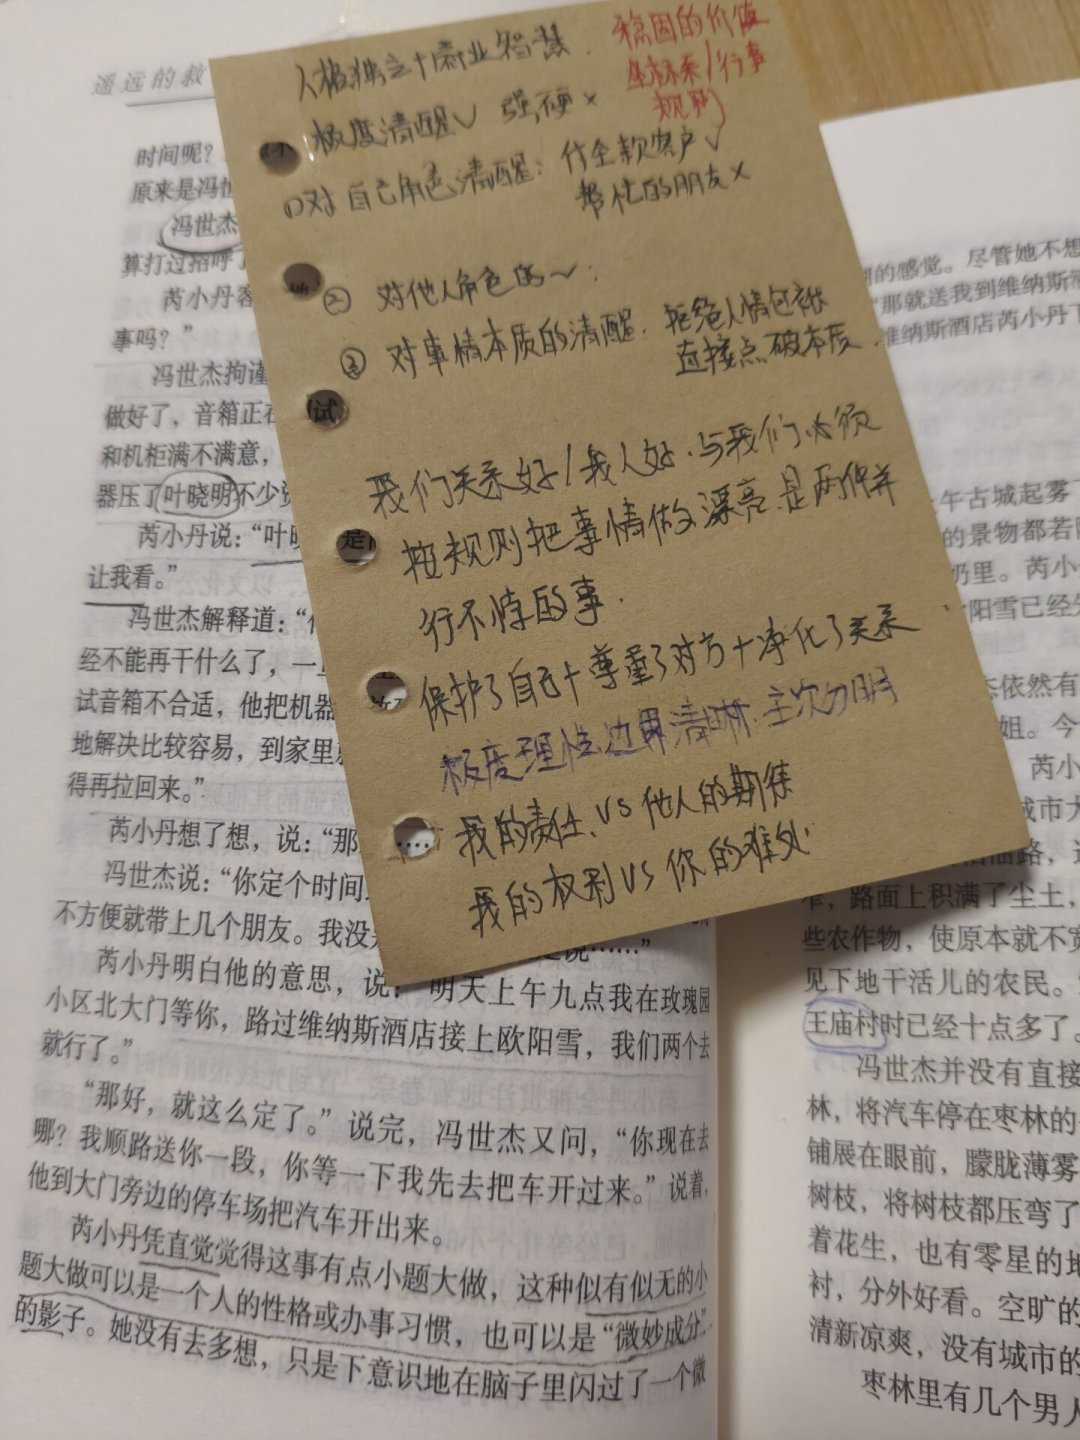 遥远的救
人格独立+商业智慧.
稳固的价值
坐标系/行事
规则
极度清醒✓ 强硬×
①对自己角色清醒：付全款客户✓
帮忙的朋友×
② 对他人角色的~.
③ 对事情本质的清醒. 拒绝人情包袱
直接点破本质.
我们关系好/我人好.与我们必须
按规则把事情做漂亮.是两件并
行不悖的事.
保护了自己+尊重了对方+净化了关系
极度理性.边界清晰.主次分明
我的责任.VS他人的期待
我的权利VS你的难处.
时间呢？
原来是冯世
冯世杰
算打过招呼了
芮小丹客
事吗？”
冯世杰拘谨
做好了，音箱正在
和机柜满不满意，
器压了叶晓明不少资
芮小丹说：“叶晓
让我看。”
冯世杰解释道：“
经不能再干什么了，一
试音箱不合适，他把机器
地解决比较容易，到家里
得再拉回来。”
芮小丹想了想，说：“那
冯世杰说：“你定个时间
不方便就带上几个朋友。我没 是说……”
芮小丹明白他的意思，说：“明天上午九点我在玫瑰园
小区北大门等你，路过维纳斯酒店接上欧阳雪，我们两个去
就行了。”
“那好，就这么定了。”说完，冯世杰又问，“你现在去
哪？我顺路送你一段，你等一下我先去把车开过来。”说着，
他到大门旁边的停车场把汽车开出来。
芮小丹凭直觉觉得这事有点小题大做，这种似有似无的小
题大做可以是一个人的性格或办事习惯，也可以是“微妙成分”
的影子。她没有去多想，只是下意识地在脑子里闪过了一个微
的感觉。尽管她不想
“那就送我到维纳斯酒
维纳斯酒店芮小丹下
午古城起雾了
的景物都若隐
奶里。芮小
欧阳雪已经
杰依然有
姐。今
芮小
城市大
路，这
窄，路面上积满了尘土，
些农作物，使原本就不宽
见下地干活儿的农民。
王庙村时已经十点多了。
冯世杰并没有直接
林，将汽车停在枣林的
铺展在眼前，朦胧薄雾
树枝，将树枝都压弯了
着花生，也有零星的地
衬，分外好看。空旷的
清新凉爽，没有城市的
枣林里有几个男人